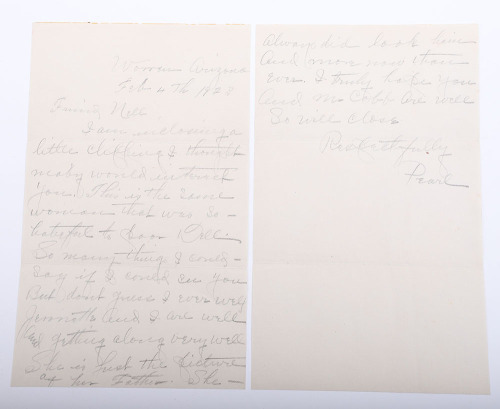 Arizona
Feb 4th 1928
Friend Nell
I am inclosing a
little clipping I thought
maby would intrest
you. This is the same
woman that was so-
hateful to poor
So many things I could-
say if I could see you
But dont guess I ever will
and I are well
and getting along very well
She is Just the picture
of her Father. She-
Always did look him
And more now than
ever. I truly hope you
And Mr Cobb Are well
So will close
Respectfully
Pearl